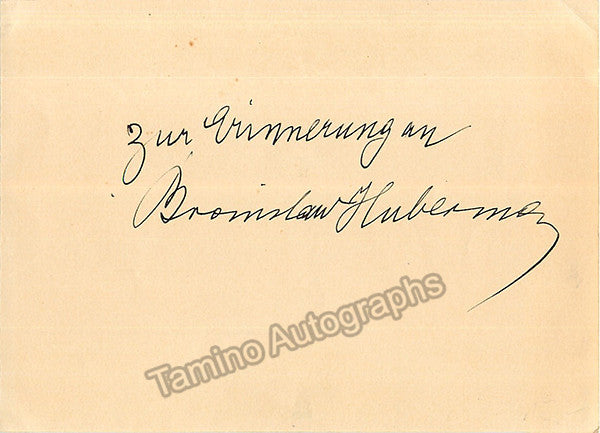 Zur Erinnerung an
Bronislaw Huberman
Tamino Autographs